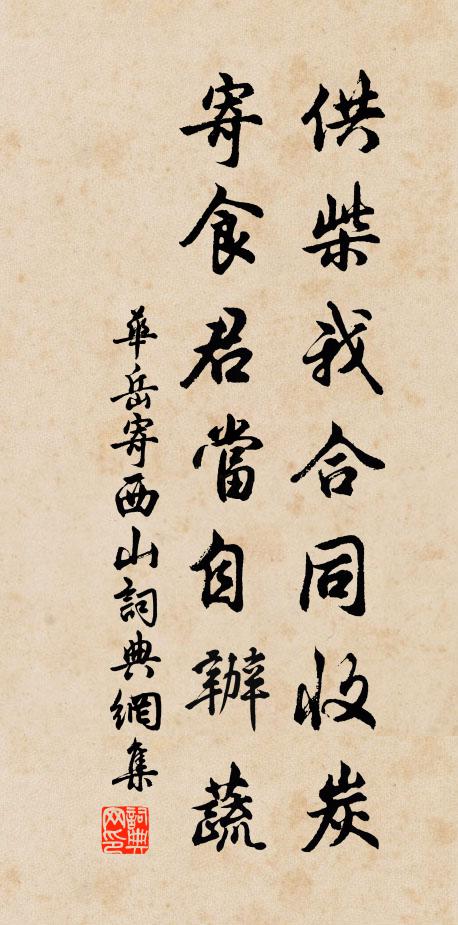 供柴我合同收炭
寄食君當自辦蔬
華岳寄西山詞典網集
詞典網印